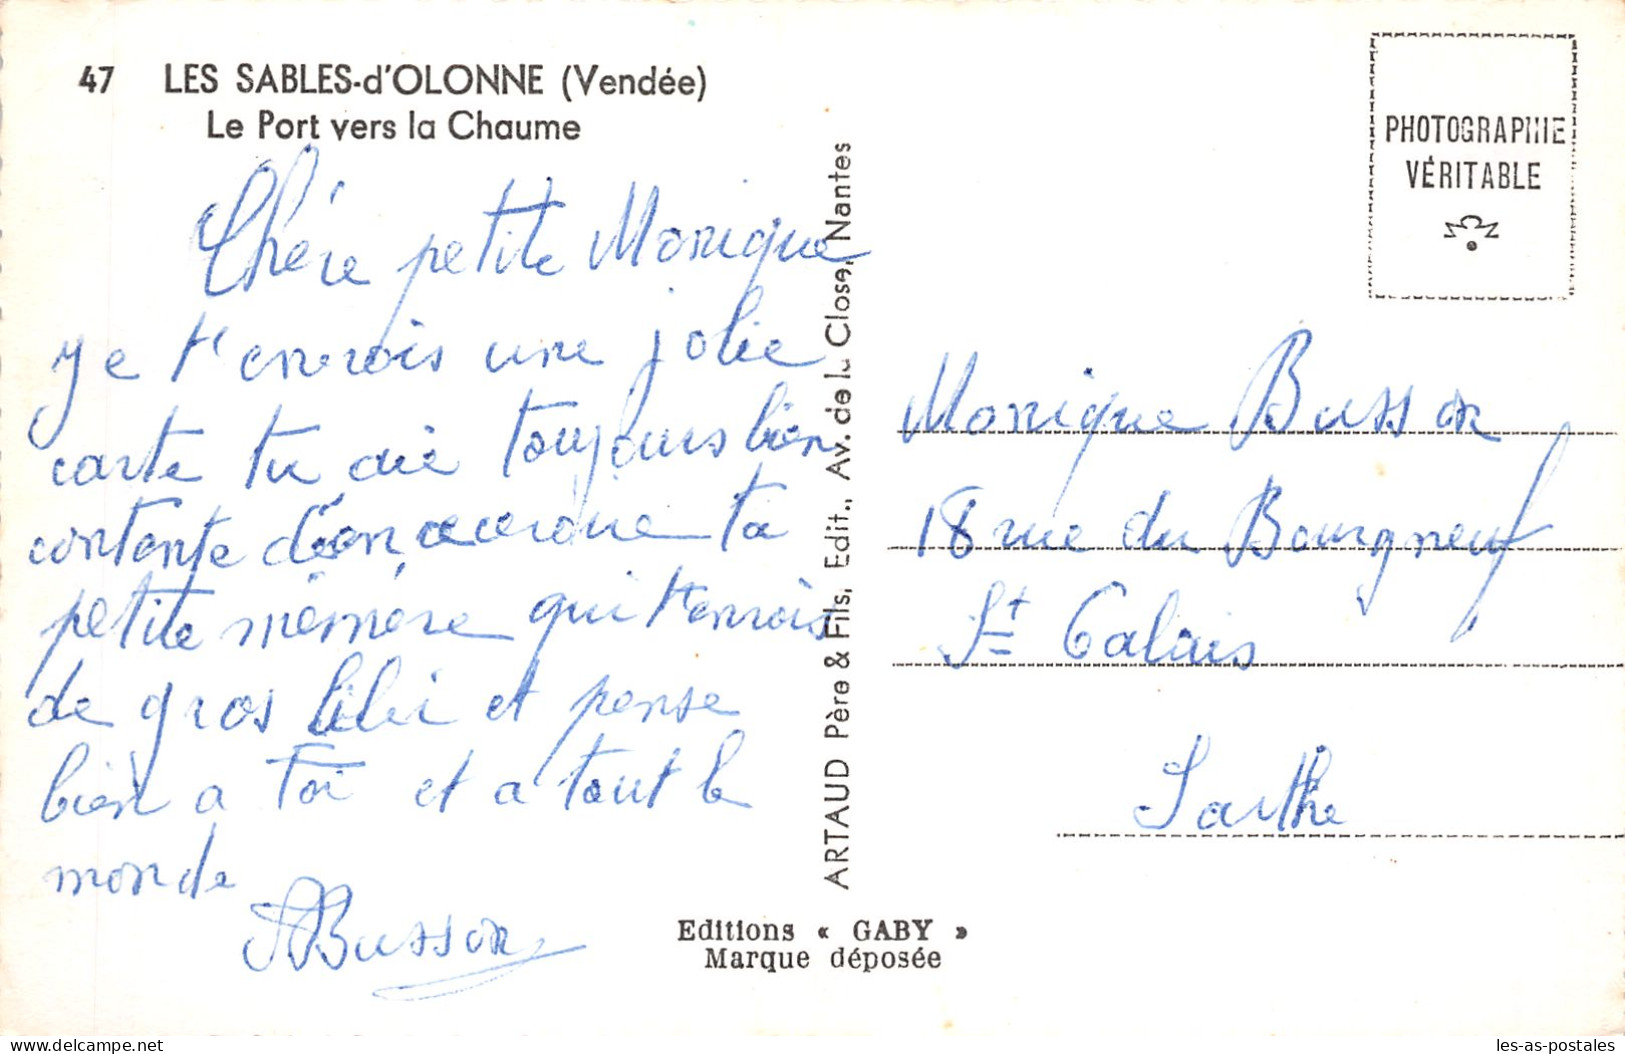 47 LES SABLES-d'OLONNE (Vendée)
Le Port vers la Chaume
Chére petite Monique
je t'envois une jolie
carte tu aie toujours bien
contente d'en ta
petite mémère qui t'envois
de gros et pense
bien a toi et a tout le
monde
Busson
ARTAUD Père & Fils, Edit., Av. de la Close, Nantes
Editions « GABY »
Marque déposée
PHOTOGRAPHIE
VÉRITABLE
Monique Busson
18 rue du Bourgneuf
St Calais
Sarthe
www.delcampe.net
les-as-postales